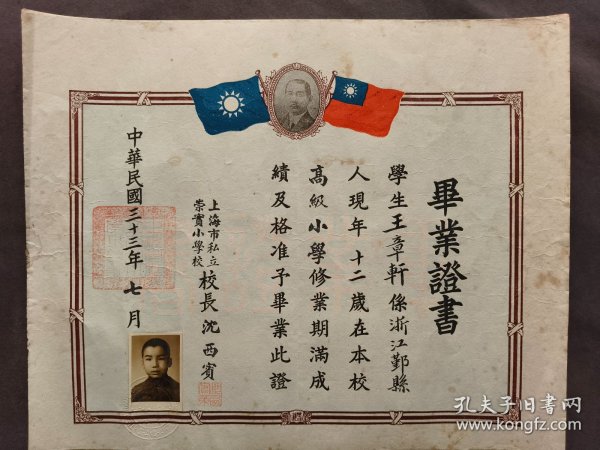 畢業證書
學生王章軒係浙江鄞縣
人現年十二歲在本校
高級小學修業期滿成
績及格准予畢業此證
上海市私立
崇實小學校
校長沈西賓
中華民國三十三年七月
孔夫子旧书网
www.kongfz.com